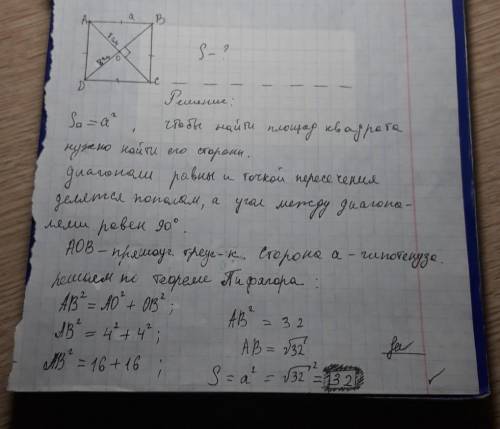 A a B
8см
8см
O
D C
S - ?
Решение:
S□ = a² , чтобы найти площад квадрата
нужно найти его стороны.
Диагонали равны и точкой пересечения
делятся пополам, а угол между диагона-
лями равен 90°.
AOB - прямоуг. треуг-к. Сторона a - гипотенуза.
решаем по теореме Пифагора :
AB² = AO² + OB² ;
AB² = 4² + 4² ;
AB² = 16 + 16 ;
AB² = 32
AB = √32
S = a² = √32² = 32